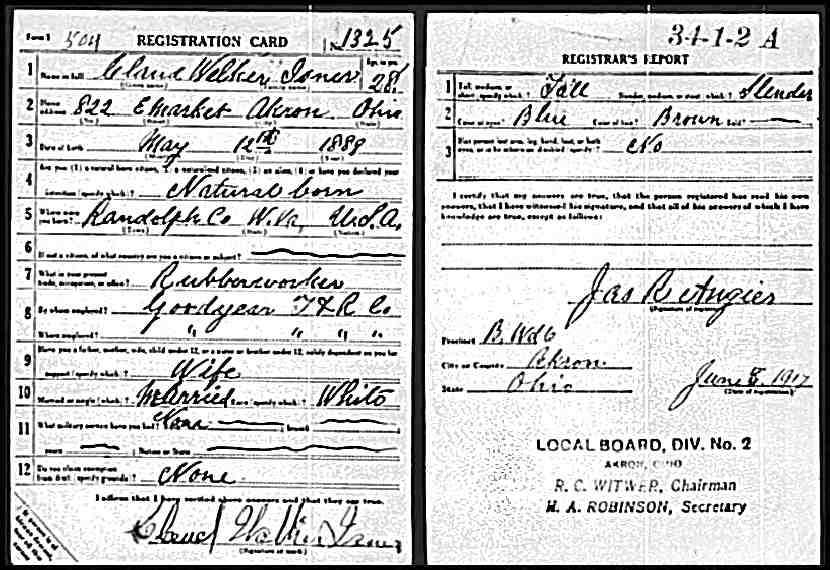 Form 1 504 REGISTRATION CARD No. 1325
1 Name in full Claud Welker Isner Age, in yrs. 28
(Given name) (Family name)
2 Home address 822 E Market Akron Ohio
(No.) (Street) (City) (State)
3 Date of birth May 12th 1889
(Month) (Day) (Year)
Are you (1) a natural-born citizen, (2) a naturalized citizen, (3) an alien, (4) or have you declared your
4 intention (specify which)? Natural born
5 Where were you born? Randolph Co W.Va, U.S.A.
(Town) (State) (Nation)
6 If not a citizen, of what country are you a citizen or subject?
7 What is your present trade, occupation, or office? Rubberworker
8 By whom employed? Goodyear T & R Co
Where employed? " " " "
9 Have you a father, mother, wife, child under 12, or a sister or brother under 12, solely dependent on you for
support (specify which)? Wife
10 Married or single (which)? Married Race (specify which)? White
11 What military service have you had? Rank None ; branch
years ; Nation or State
12 Do you claim exemption from draft (specify grounds)? None
I affirm that I have verified above answers and that they are true.
Claud Walker Isner
(Signature or mark)
34-1-2 A
REGISTRAR'S REPORT
1 Tall, medium, or short, specify which? Tall Slender, medium, or stout, which? Slender
2 Color of eyes? Blue Color of hair? Brown Bald?
3 Has person lost arm, leg, hand, foot, or both eyes, or is he otherwise disabled (specify)? No
I certify that my answers are true, that the person registered has read his own
answers, that I have witnessed his signature, and that all of his answers of which I have
knowledge are true, except as follows:
Jas R Angier
(Signature of registrar)
Precinct B. Wd 6
City or County Akron
State Ohio June 8, 1917
(Date of registration)
LOCAL BOARD, DIV. No. 2
AKRON, OHIO
R. C. WITWER, Chairman
M. A. ROBINSON, Secretary